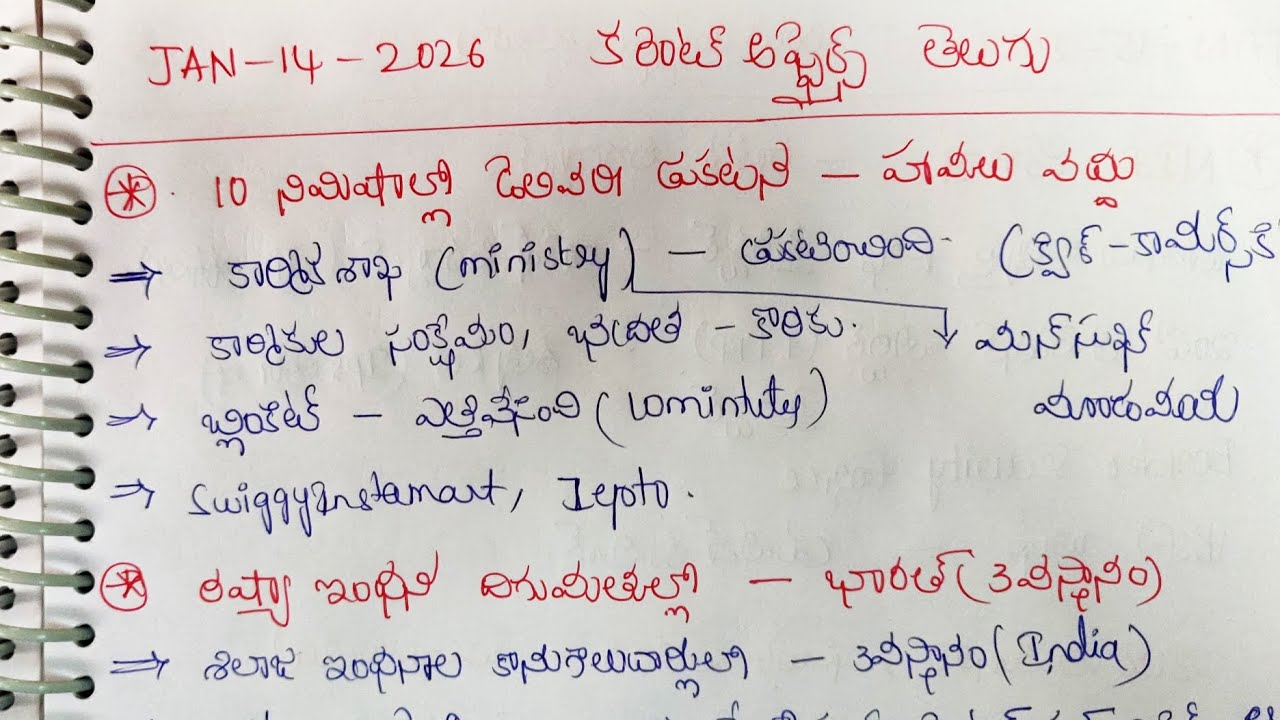 JAN-14-2026 కరెంట్ అఫైర్స్ తెలుగు
* 10 నిమిషాల్లో డెలివరీ ప్రకటన - హామీలు వద్దు
⇒ కార్మికశాఖ (ministry) - ప్రకటించింది. (క్విక్-కామర్స్‌కి
⇒ కార్మికుల సంక్షేమం, భద్రత - కొరకు. ↓ మన్‌సుఖ్
⇒ బ్లింకిట్ - ఎత్తివేసింది (10mintity) మాండవీయ
⇒ SwiggyInstamart, Zepto.
* రష్యా ఇంధన దిగుమతుల్లో - భారత్ (3వస్థానం)
⇒ శిలాజ ఇంధనాల కొనుగోలుదార్లులో - 3వస్థానం (India)